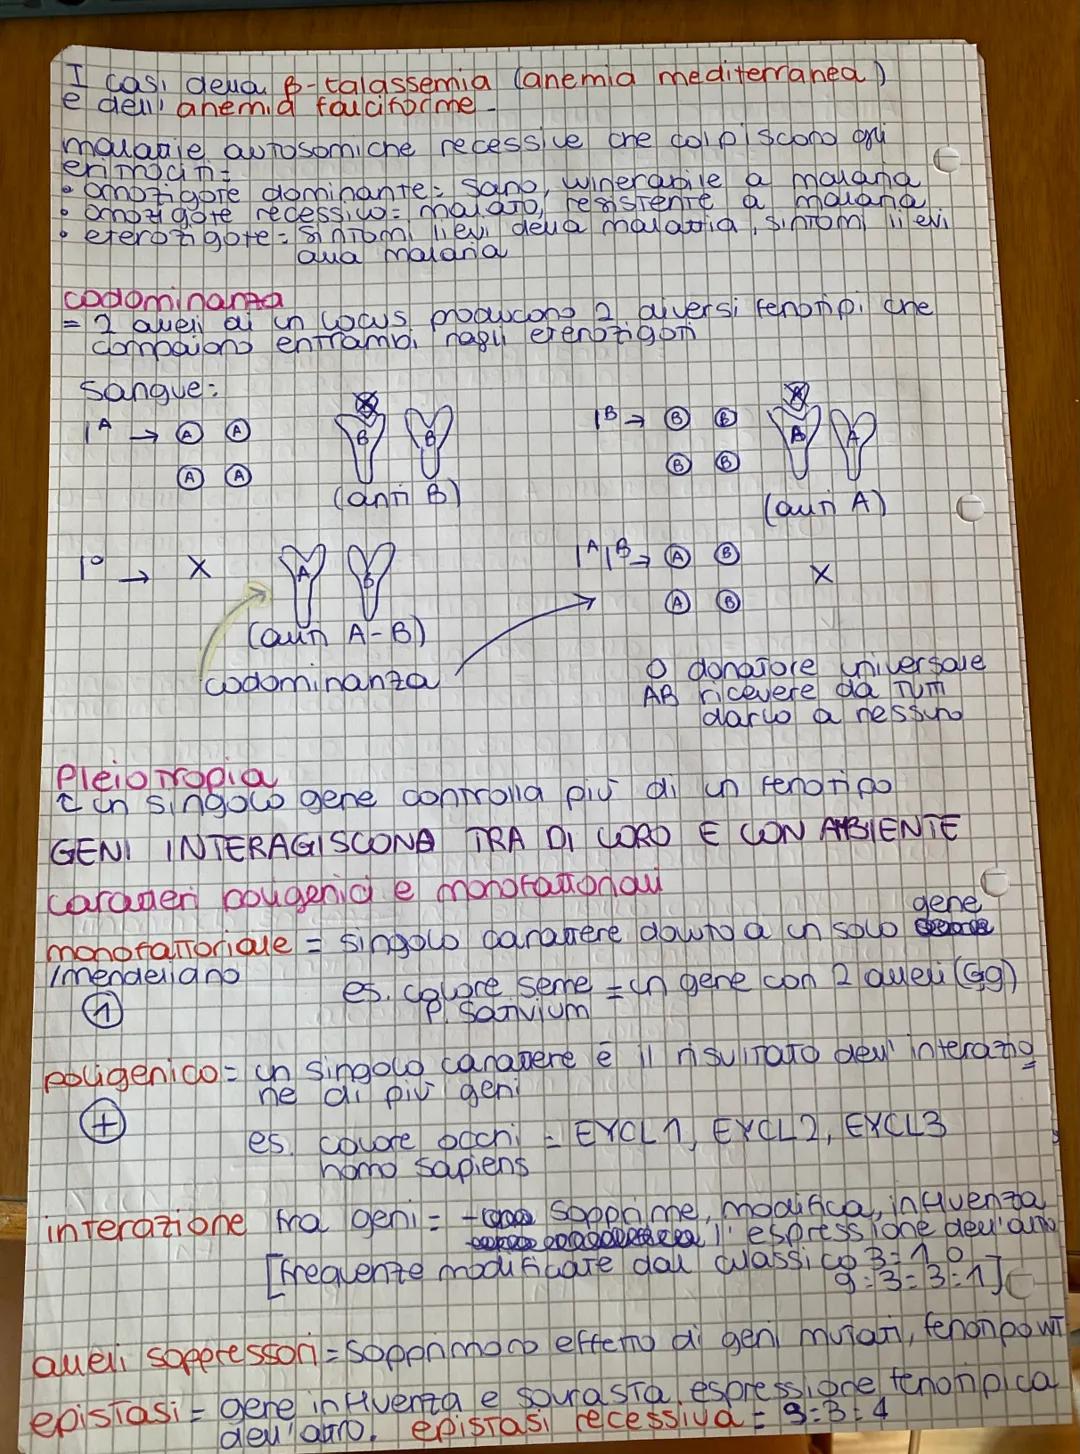 I casi della β-talassemia (anemia mediterranea)
e dell' anemia falciforme
malattie autosomiche recessive che colpiscono gli
eritrociti:
• omozigote dominante: sano, vulnerabile a malaria
• omozigote recessivo: malato, resistente a malaria
• eterozigote: sintomi lievi della malattia, sintomi lievi
alla malaria
codominanza
= 2 alleli di un locus producono 2 diversi fenotipi che
compaiono entrambi negli eterozigoti
sangue:
I^A → A A B B
A A
(anti B)
I^B → B B A A
B B
(anti A)
I^0 → X A B
(anti A-B)
I^A I^B → A B X
A B
codominanza
O donatore universale
AB ricevere da tutti
darlo a nessuno
Pleiotropia
un singolo gene controlla più di un fenotipo
GENI INTERAGISCONO TRA DI LORO E CON AMBIENTE
caratteri poligenici e monofattoriali
monofattoriale = singolo carattere dovuto a un solo gene
/mendeliano
1
es. colore seme = un gene con 2 alleli (Gg)
P. Sativium
poligenico = un singolo carattere è il risultato dell' interazio
ne di più geni
+
es. colore occhi = EYCL1, EYCL2, EYCL3
homo sapiens
interazione fra geni = sopprime, modifica, influenza
l' espressione dell'altro
[frequenze modificate dal classico 3:1 o
9:3:3:1]
alleli soppressori = sopprimono effetto di geni mutati, fenotipo WT
epistasi = gene influenza e sovrasta espressione fenotipica
dell' altro. epistasi recessiva = 9:3:4